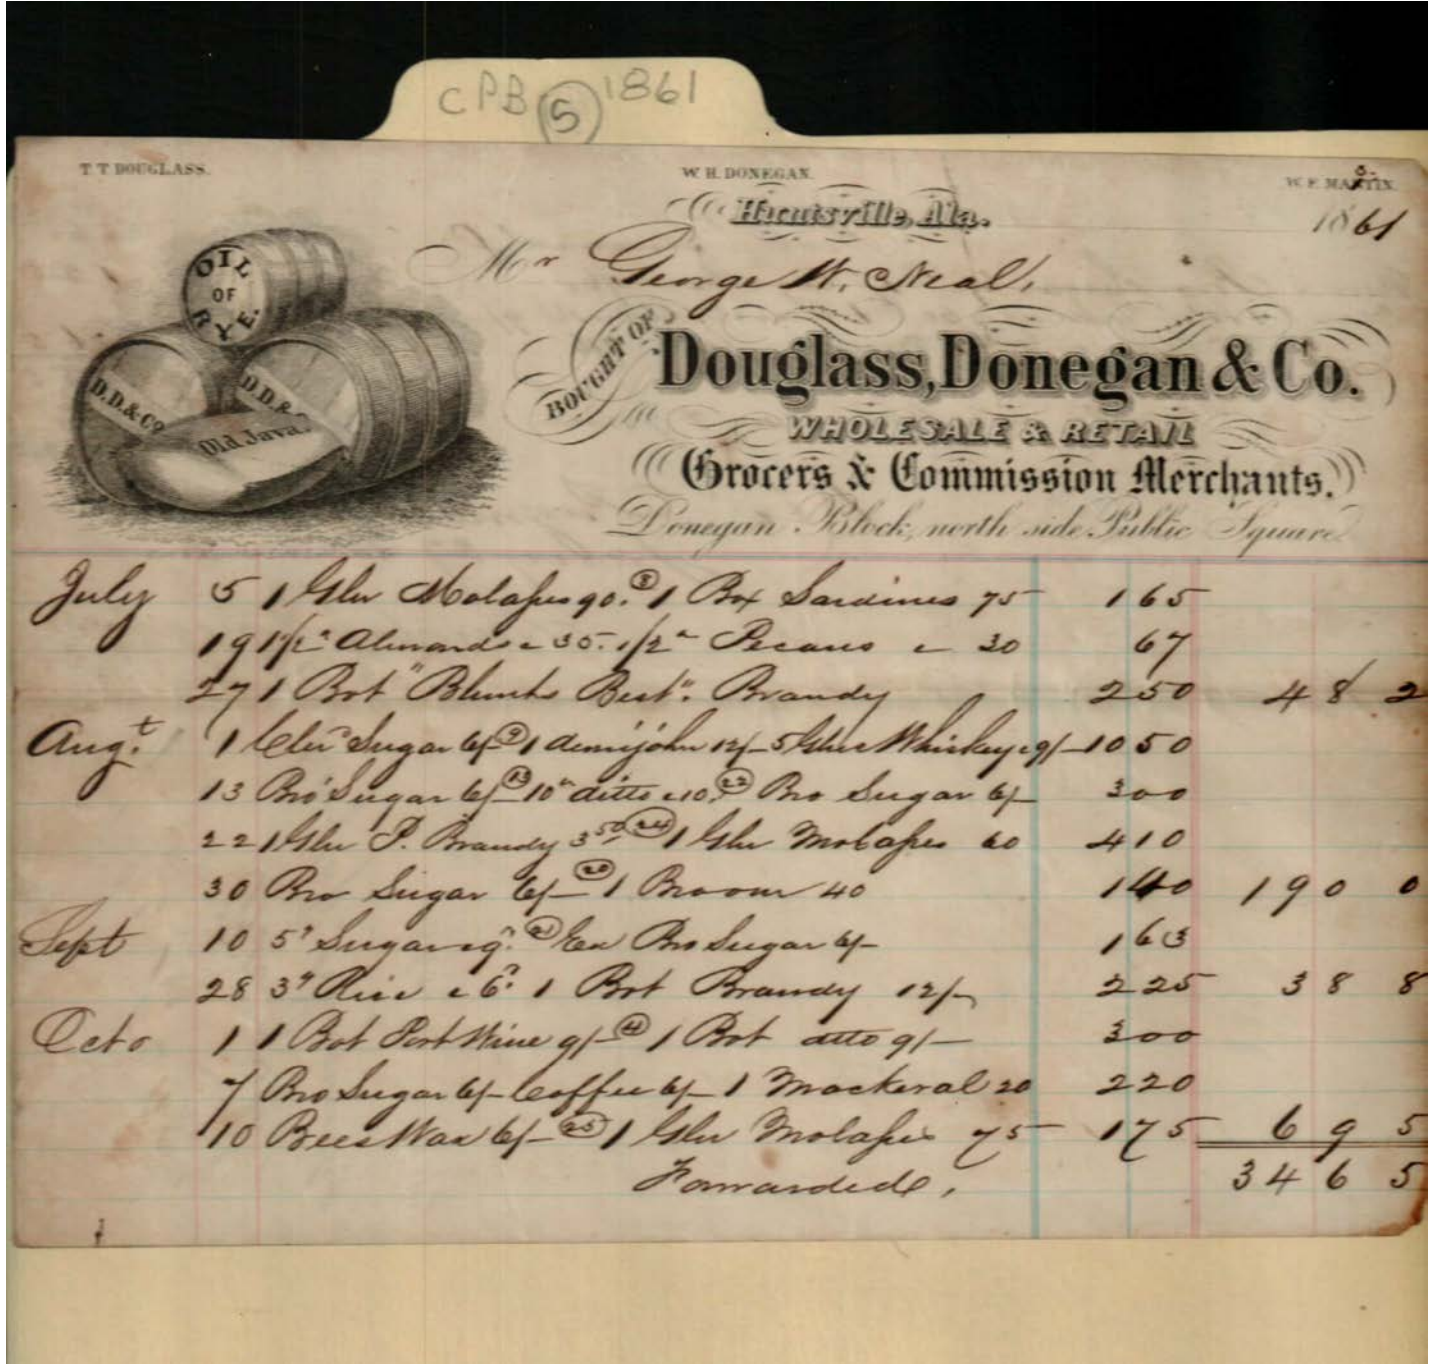 CPB (5) 1861
T. T. DOUGLASS. W. H. DONEGAN. W. F. MARTIN.
Huntsville, Ala. 1861
Mr George W. Neal,
OIL OF RYE.
D.D.& Co D.D.&
Old Java.
BOUGHT OF
Douglass, Donegan & Co.
WHOLESALE & RETAIL
Grocers & Commission Merchants.
Donegan Block, north side Public Square
July 5 1 Gln Molasses 90. (8) 1 Box Sardines 75 165
19 1/2 " Almonds @ 35. 1/2 " Pecans @ 30 67
27 1 Bot "Blunts Best". Brandy 250 482
Augt. 1 Clfd Sugar 6/- (9) 1 demijohn 12/- 5 Glns Whiskey @ 9/- 1050
13 Bro Sugar 6/- (13) 10 " ditto @ 10. (22) Bro Sugar 6/- 300
22 1 Gln P. Brandy 3 50 (24) 1 Gln Molasses 60 410
30 Bro Sugar 6/- (20) 1 Broom 40 140 1900
Sept 10 5 " Sugar Bro Sugar 6/- 163
28 3 " Rice @ 6. 1 Bot Brandy 12/- 225 388
Octo 1 1 Bot Port Wine 9/- (4) 1 Bot ditto 9/- 300
7 Bro Sugar 6/- Coffee 6/- 1 Mackeral 20 220
10 Bees Wax 6/- (25) 1 Gln Molasses 75 175 695
Forwarded, 3465